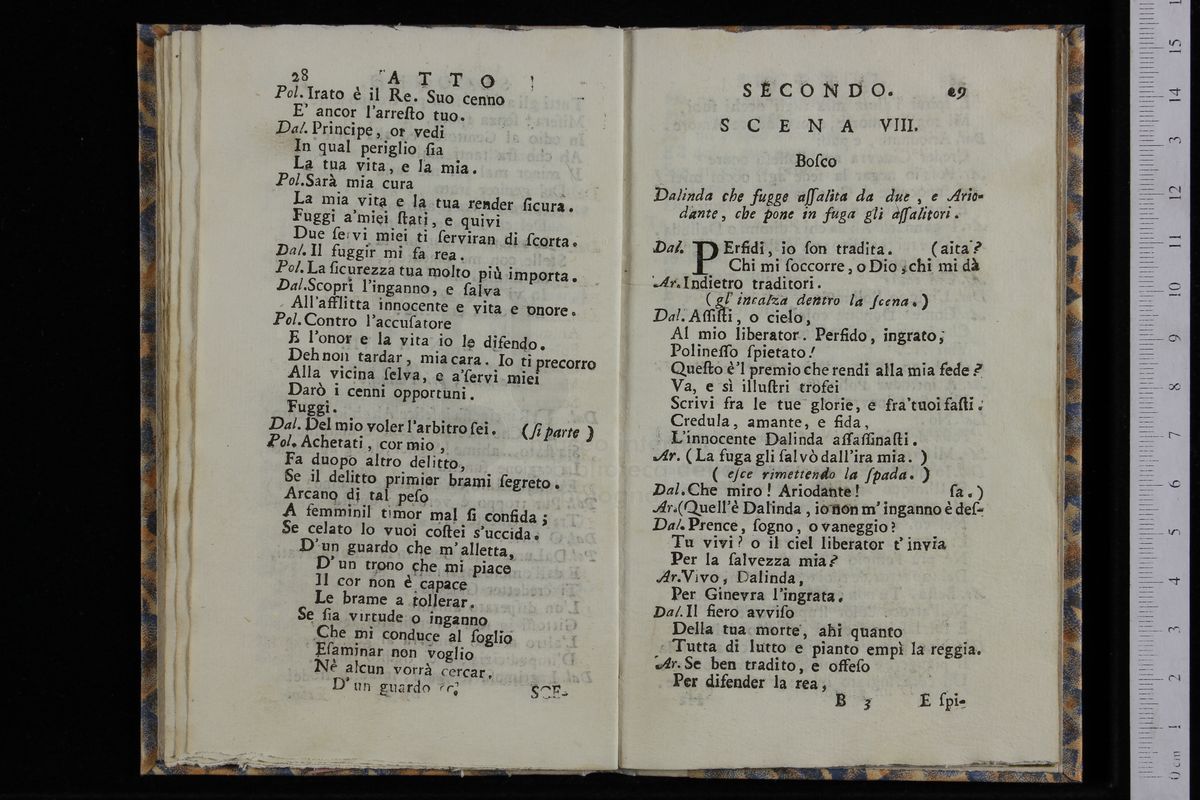 28 ATTO
Pol. Irato è il Re. Suo cenno
E' ancor l'arreſto tuo.
Dal. Principe, or vedi
In qual periglio ſia
La tua vita, e la mia.
Pol. Sarà mia cura
La mia vita e la tua render ſicura.
Fuggi a'miei ſtati, e quivi
Due ſervi miei ti ſerviran di ſcorta.
Dal. Il fuggir mi fa rea.
Pol. La ſicurezza tua molto più importa.
Dal. Scoprì l'inganno, e ſalva
All'afflitta innocente e vita e onore.
Pol. Contro l'accuſatore
E l'onor e la vita io le difendo.
Deh non tardar, mia cara. Io ti precorro
Alla vicina ſelva, e a'ſervi miei
Darò i cenni opportuni.
Fuggi.
Dal. Del mio voler l'arbitro ſei. (ſi parte)
Pol. Achetati, cor mio,
Fa duopo altro delitto,
Se il delitto primier brami ſegreto.
Arcano di tal peſo
A femminil timor mal ſi confida;
Se celato lo vuoi coſtei s'uccida.
D'un guardo che m'alletta,
D'un trono che mi piace
Il cor non è capace
Le brame a tollerar.
Se ſia virtude o inganno
Che mi conduce al ſoglio
Eſaminar non voglio
Nè alcun vorrà cercar.
D'un guardo ec.
SCE-
SECONDO. 29
SCENA VIII.
Boſco
Dalinda che fugge aſſalita da due, e Ario-
dante, che pone in fuga gli aſſalitori.
Dal. PErfidi, io ſon tradita. (aita?
Chi mi ſoccorre, o Dio, chi mi dà
Ar. Indietro traditori.
(gl' incalza dentro la ſcena.)
Dal. Aſſiſti, o cielo,
Al mio liberator. Perfido, ingrato,
Polineſſo ſpietato!
Queſto è'l premio che rendi alla mia fede?
Va, e sì illuſtri trofei
Scrivi fra le tue glorie, e fra'tuoi faſti.
Credula, amante, e fida,
L'innocente Dalinda aſſaſſinaſti.
Ar. (La fuga gli ſalvò dall'ira mia.)
(eſce rimettendo la ſpada.)
Dal. Che miro! Ariodante! ſa.)
Ar. (Quell'è Dalinda, io non m'inganno è deſ-
Dal. Prence, ſogno, o vaneggio?
Tu vivi? o il ciel liberator t'invia
Per la ſalvezza mia?
Ar. Vivo, Dalinda,
Per Ginevra l'ingrata.
Dal. Il fiero avviſo
Della tua morte, ahi quanto
Tutta di lutto e pianto empì la reggia.
Ar. Se ben tradito, e offeſo
Per difender la rea,
B 3 E ſpi-
0 cm 1 2 3 4 5 6 7 8 9 10 11 12 13 14 15